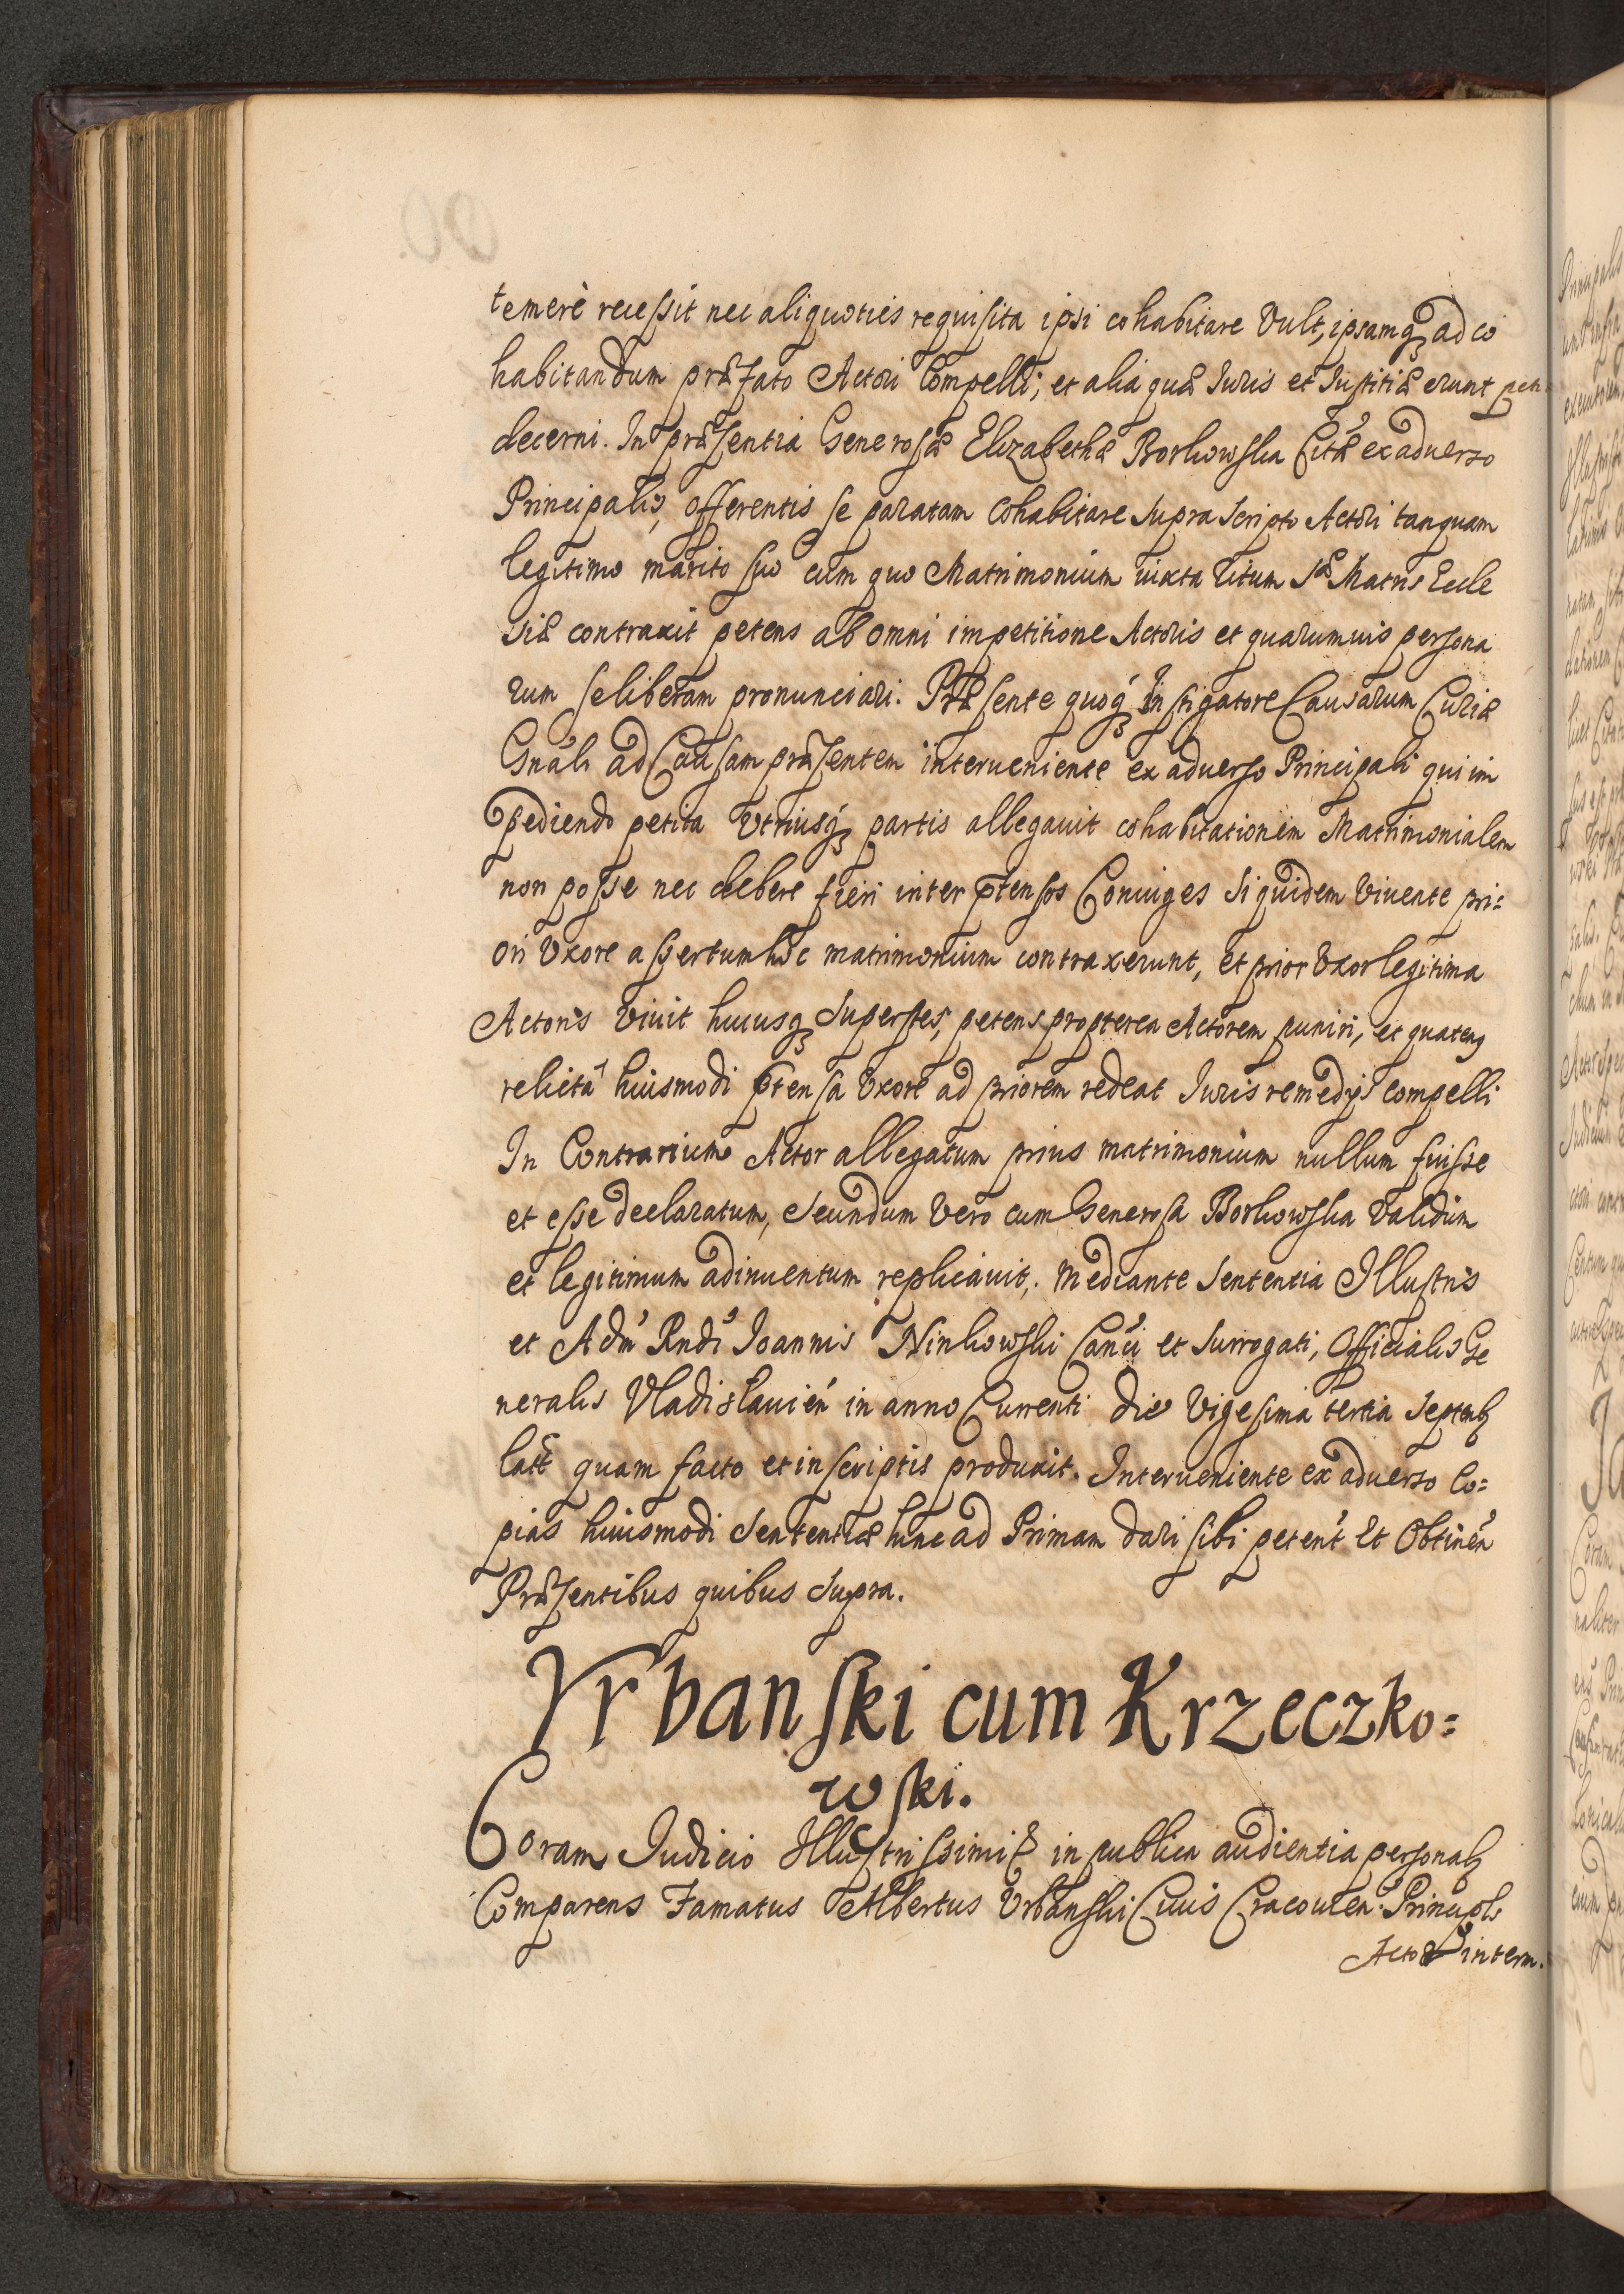 temerè recessit nec aliquoties requisita ipsi cohabitare Vult, ipsamqꝫ ad co
habitandum præfato Actori Compelli; et alia quæ Iuris et Iustitiæ erunt peti
decerni. In præsentia Generosæ Elizabethæ Borkowska Citæ ex aduerso
Principalis, offerentis se paratam Cohabitare supra scripto Actori tanquam
legitimo marito suo cum quo Matrimonium iuxta ritum Sæ Matris Eccle
siæ contraxit petens ab omni impetitione Actoris et quarumuis persona
rum se liberam pronunciari. Præsente quoqꝫ Instigatore Causarum Curiæ
Gnâlis ad Causam præsentem interueniente ex aduerso Principali qui im
pediendo petita Vtriusqꝫ partis allegauit cohabitationem Matrimonialem
non posse nec debere fieri inter p̄tensos Coniuges siquidem Viuente pri=
ori Vxore assertum hoc matrimonium contraxerunt, et prior Vxor legitima
Actoris Viuit hucusqꝫ superstes, petens propterea Actorem puniri, et quatenꝰ
relictâ huismodi p̄tensa Vxore ad priorem redeat Iuris remedijs compelli
In Contrarium Actor allegatum prius matrimonium nullum fuisse
et esse declaratum, secundum Vero cum Generosa Borkowska Validum
et legitimum adinuentum replicauit. Mediante sententia Illustris
et Adm̃ Rndi Ioannis Ninkowski Canci et surrogati, Officialis Ge
neralis Vladislauień in anno Currenti die Vigesima tertia Septembꝫ
latæ quam facto et in scriptis produxit. Interueniente ex aduerso Co=
pias huiusmodi sententiæ hinc ad Primam dari sibi peteñ et Obtineñ
Præsentibus quibus supra.
Vrbanski cum Krzeczko=
wski.
Coram Iudicio Illustrissimi & in publica audientia personalꝫ
Comparens Famatus Albertus Vrbanski Ciuis Cracouień Principls
Actor interm.